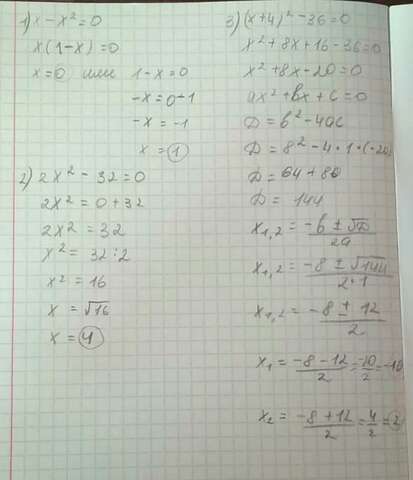 1) x - x² = 0
x(1-x) = 0
x = 0 или 1-x=0
-x = 0-1
-x = -1
x = 1
2) 2x² - 32 = 0
2x² = 0+32
2x² = 32
x² = 32:2
x² = 16
x = √16
x = 4
3) (x+4)² - 36 = 0
x² + 8x + 16 - 36 = 0
x² + 8x - 20 = 0
ax² + bx + c = 0
D = b² - 4ac
D = 8² - 4·1·(-20)
D = 64 + 80
D = 144
x₁,₂ = (-b ± √D)/2a
x₁,₂ = (-8 ± √144)/2·1
x₁,₂ = (-8 ± 12)/2
x₁ = (-8-12)/2 = -20/2 = -10
x₂ = (-8+12)/2 = 4/2 = 2